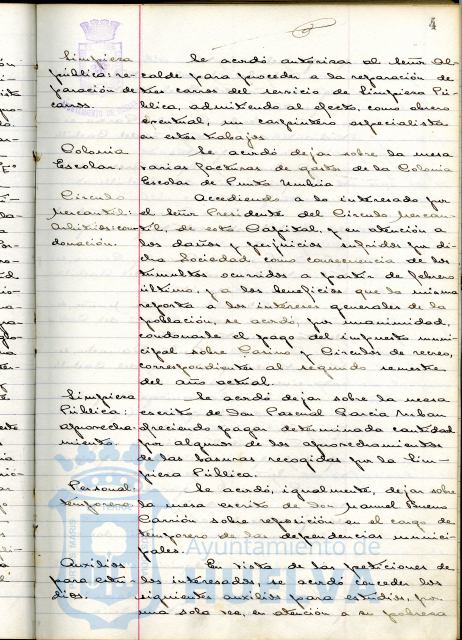 4
Limpieza pública: reparación de carros.
Se acordó autorizar al Señor Alcalde para proceder a la reparación de
tres carros del servicio de Limpieza Pública, admitiendo al efecto, como obrero
eventual, un carpintero especialista
en estos trabajos.
Colonia Escolar.
Se acordó dejar sobre la mesa
varias facturas de gastos de la Colonia
Escolar de Punta Umbría.
Círculo Mercantil: Arbitrios: condonación.
Accediendo a lo interesado por
el Señor Presidente del Círculo Mercantil, de esta Capital, y en atención a
los daños y perjuicios sufridos por dicha Sociedad como consecuencia de los
tumultos ocurridos a partir de febrero
último, y a los beneficios que la misma
reporta a los intereses generales de la
población, se acordó, por unanimidad,
condonarle el pago del impuesto municipal sobre Casino y Círculos de recreo,
correspondientes al segundo semestre
del año actual.
Limpieza Pública: aprovechamiento.
Se acordó dejar sobre la mesa
escrito de don Pascual García Urbano
ofreciendo pagar determinada cantidad
por algunos de los aprovechamientos
de las basuras recogidas por la Limpieza Pública.
Personal: temporero.
Se acordó, igualmente, dejar sobre
la mesa escrito de Don Manuel Bueno
Carrión sobre reposición en el cargo de
temporero de las dependencias municipales.
Auxilios para estudios.
En vista de las peticiones de
los interesados se acordó conceder los
siguientes auxilios para estudios, por
una sola vez, en atención a su pobreza
Ayuntamiento de
HUELVA